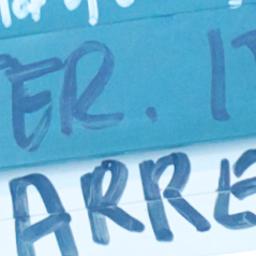 ER. I
ARRE